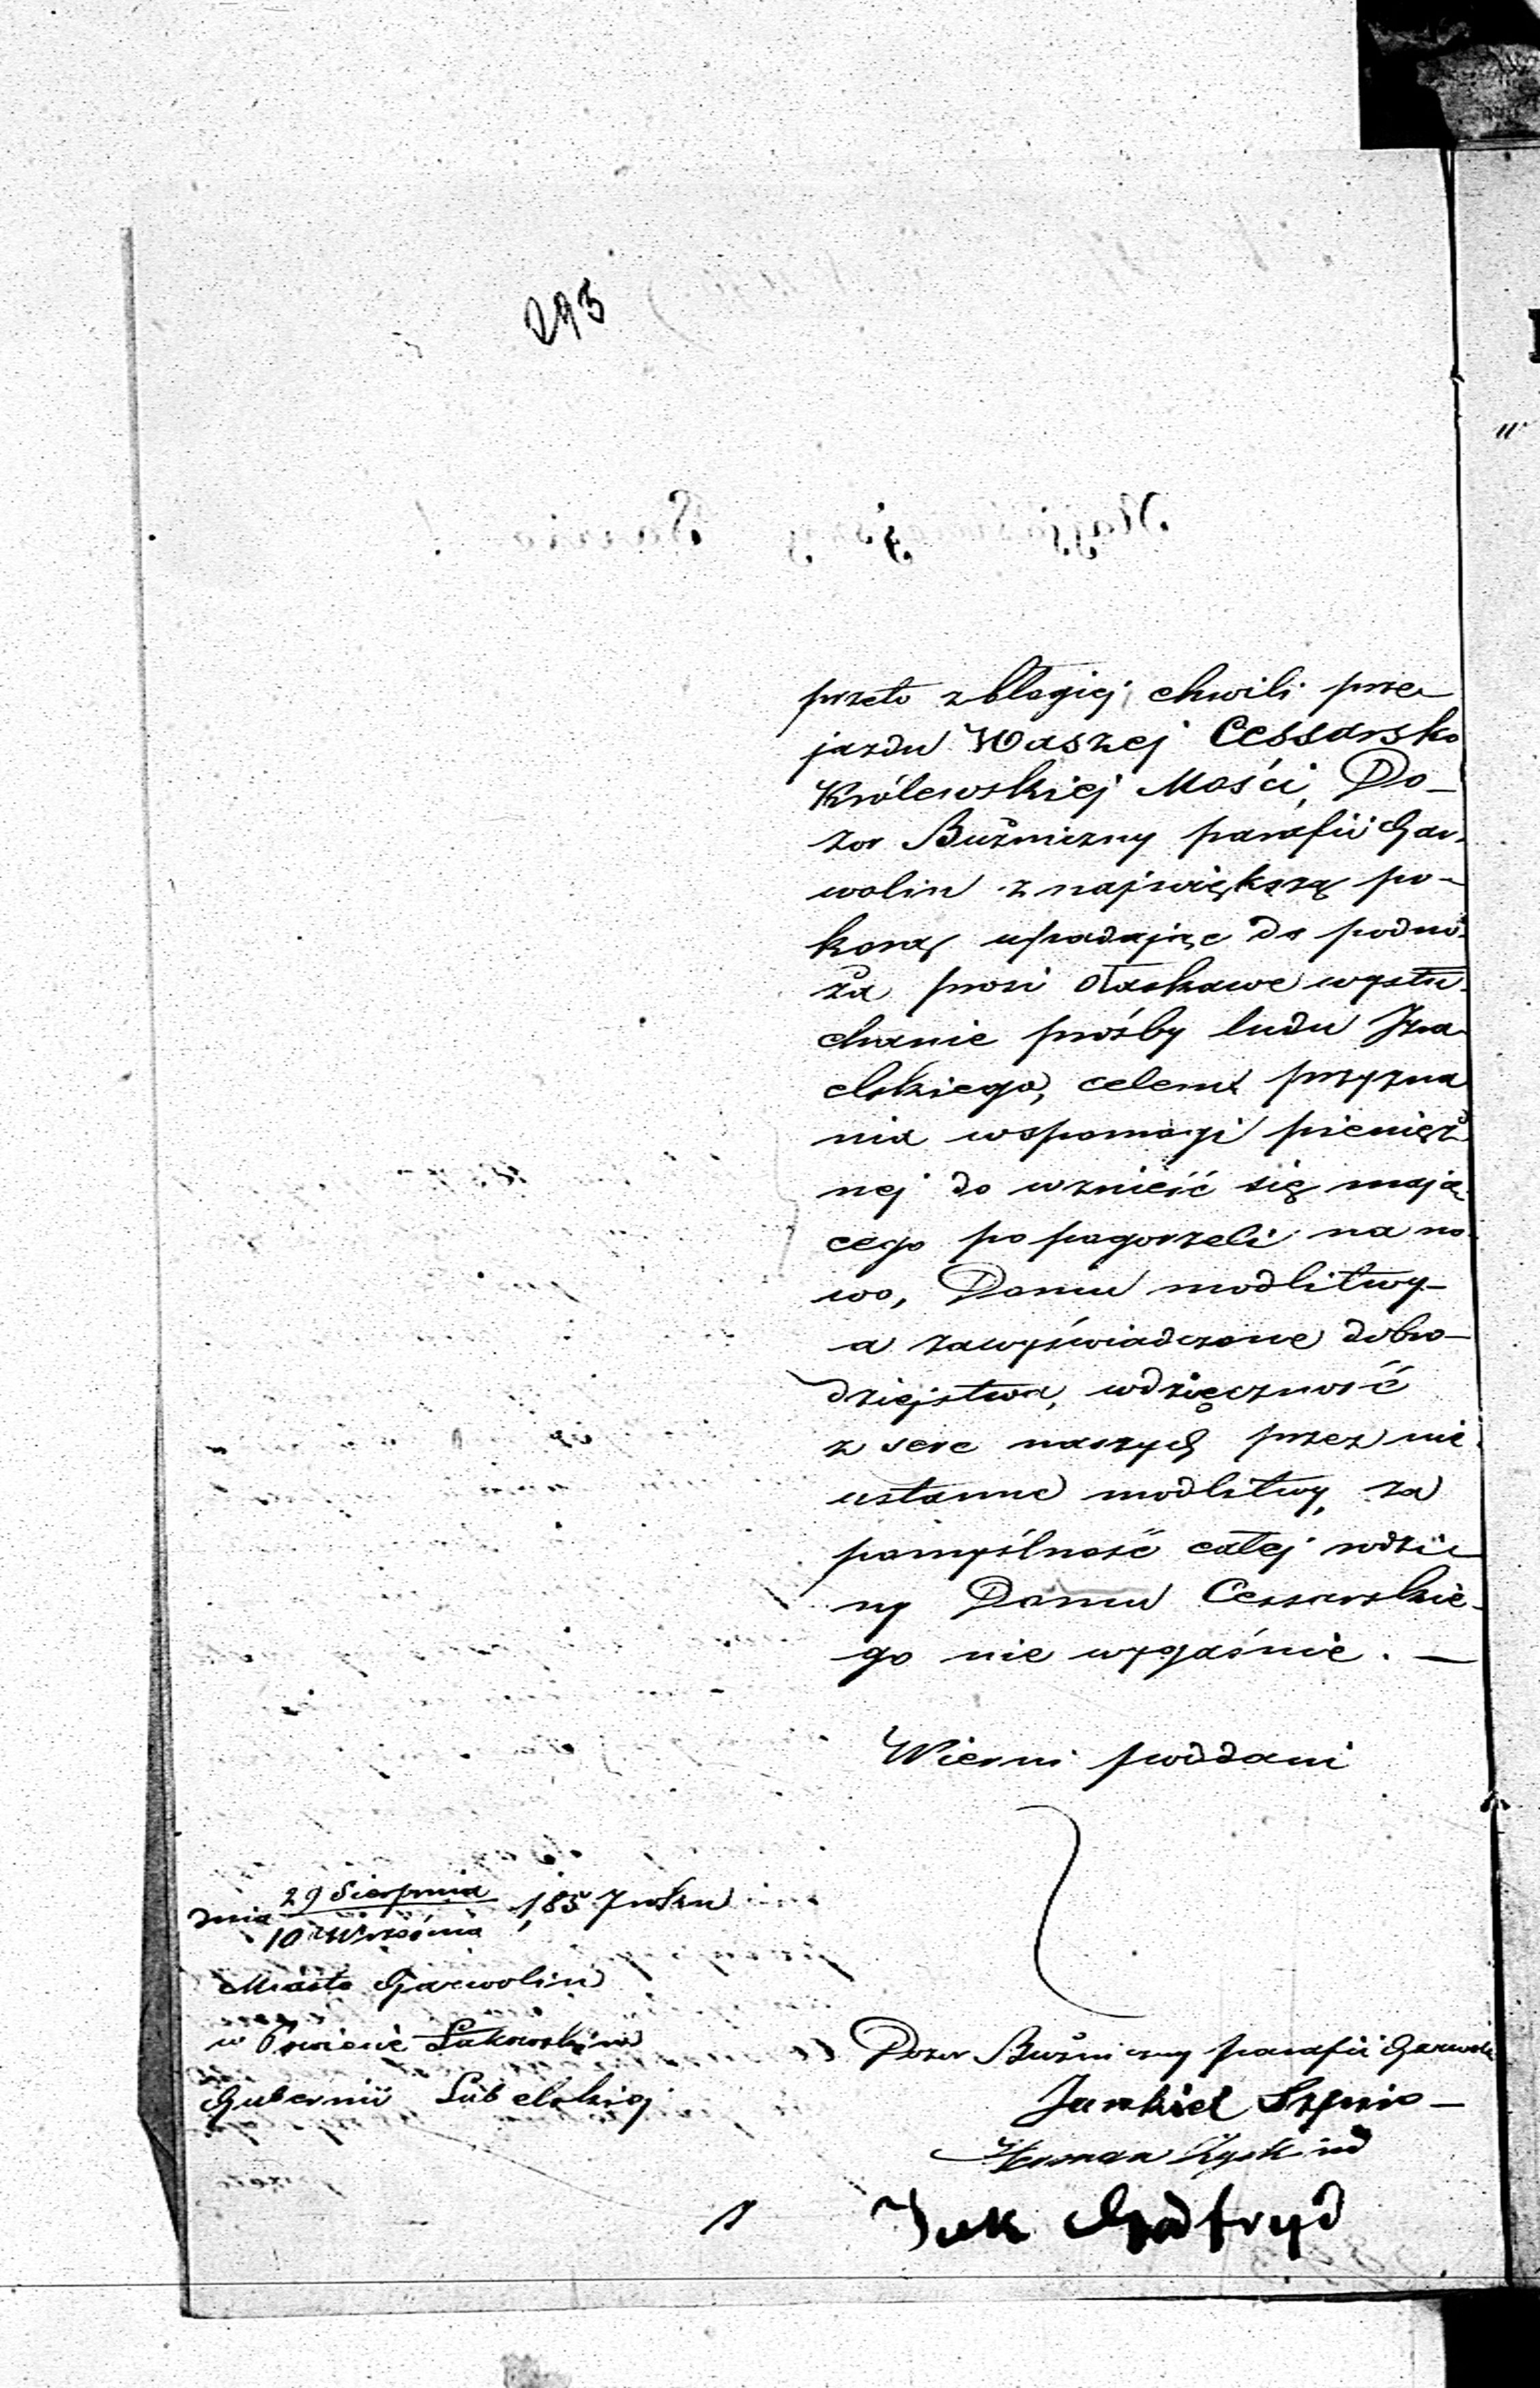 293
przeto z błogiej chwili prze
jazdu Waszej Cessarsko
Królewskiej Mości, Do-
zor Bużniczny parafii Gar-
wolin z największą po-
korą upadając do podnó-
ża prosi o łaskawe wysłu-
chanie prośby ludu Izra
elskiego, celem przyzna
nia wspomogi pienięż
nej do wznieść się mają-
cego po pogorzeli na no-
wo, Domu modlitwy-
a za wyświadczone dobro-
dziejstwa, wdzięczność
z serc naszych przez nie-
ustanne modlitwy, za
pomyślność całej rodzi-
ny Domu Cessarskie-
go nie wygaśnie. —
Wierni poddani
dnia 29 Sierpnia / 10 Września 1857 roku
Miasto Garwolin
w Powiecie Łukowskim
Gubernii Lubelskiej
Dozor Bużniczny parafii Garwolin
Jankiel
Herman
Icek Godfryd